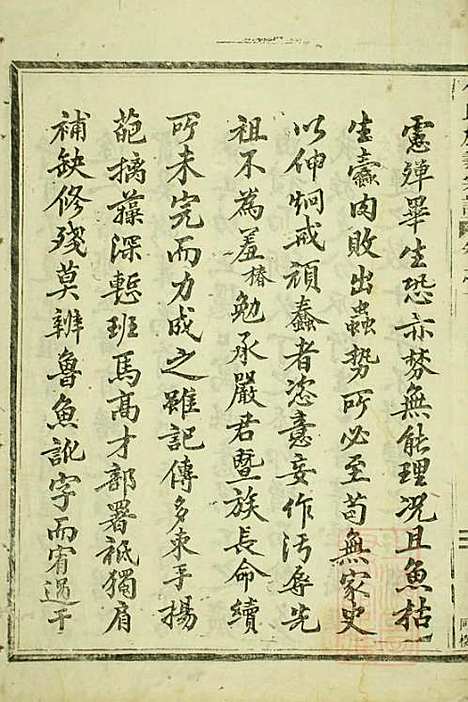 慮殫畢生恐亦棼無能理况且魚枯
生蠹肉敗出蟲勢所必至苟無家史
以伸炯戒頑蠢者恣意妄作汚辱先
祖不為羞椿勉承嚴君暨族長命續
所未完而力成之雖記傳多束手揚
葩摛藻深慙班馬高才部署祇獨肩
補缺修殘莫辨魯魚訛字而宥過于